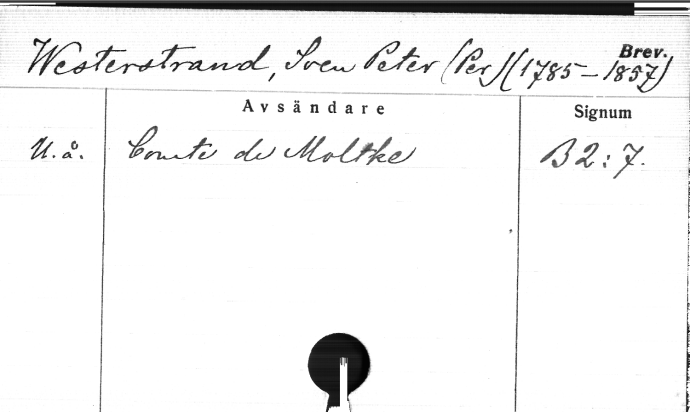 Brev.
Westerstrand, Sven Peter (Per) (1785-1857)
Avsändare Signum
U.å. Comte de Moltke B2:7.